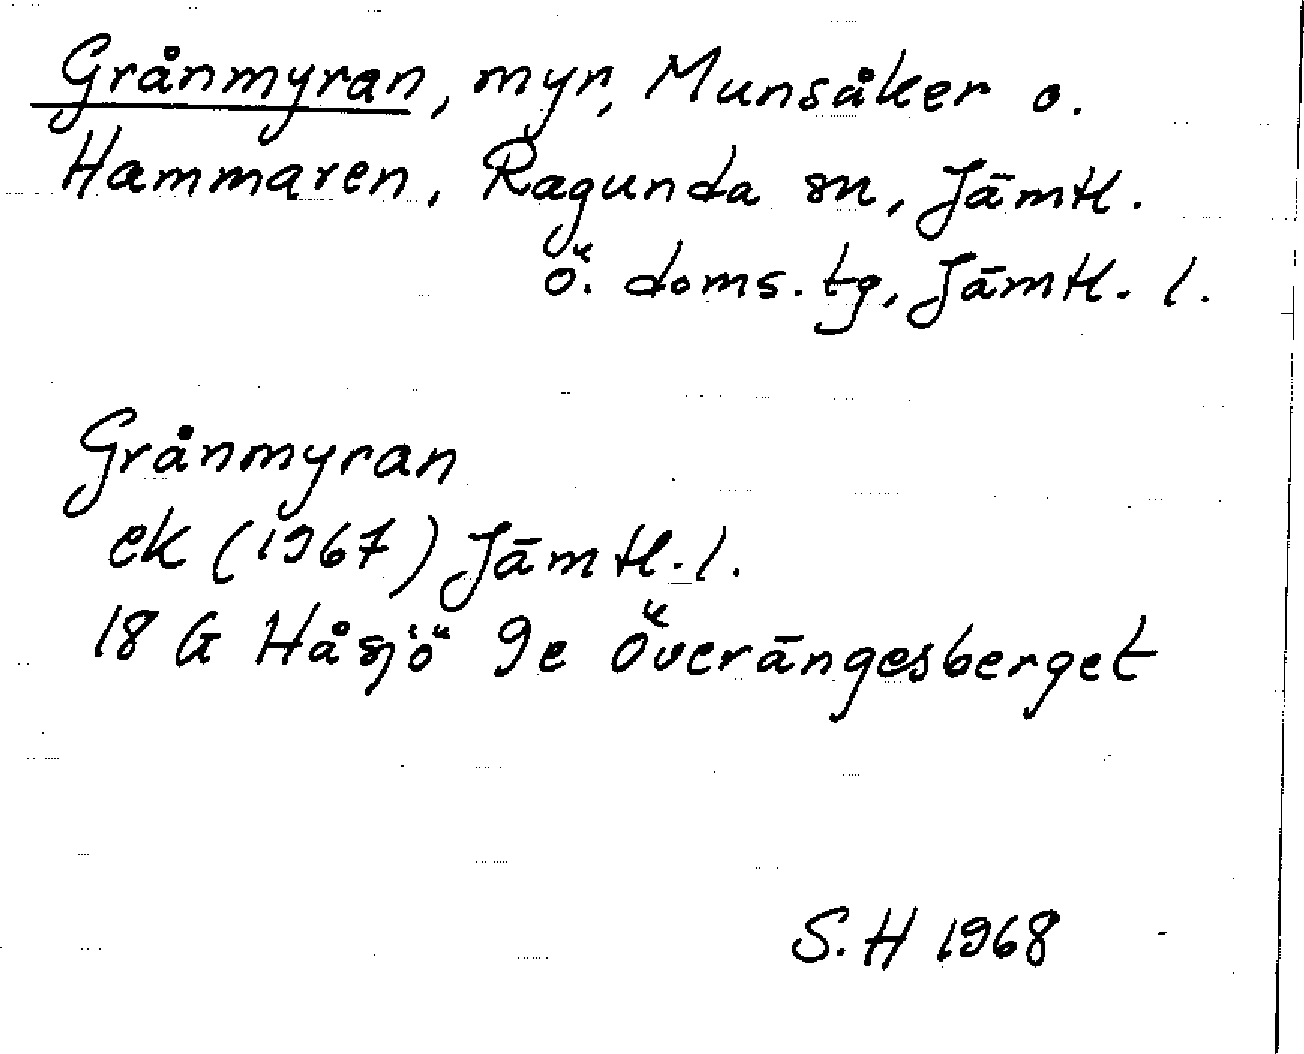 Grånmyran, myr, Munsåker o.
Hammaren, Ragunda sn, Jämtl.
ö. doms. tg, Jämtl. l.
Grånmyran
ek (1967) Jämtl. l.
18 G Håsjö 9e Överängesberget
S. H 1968